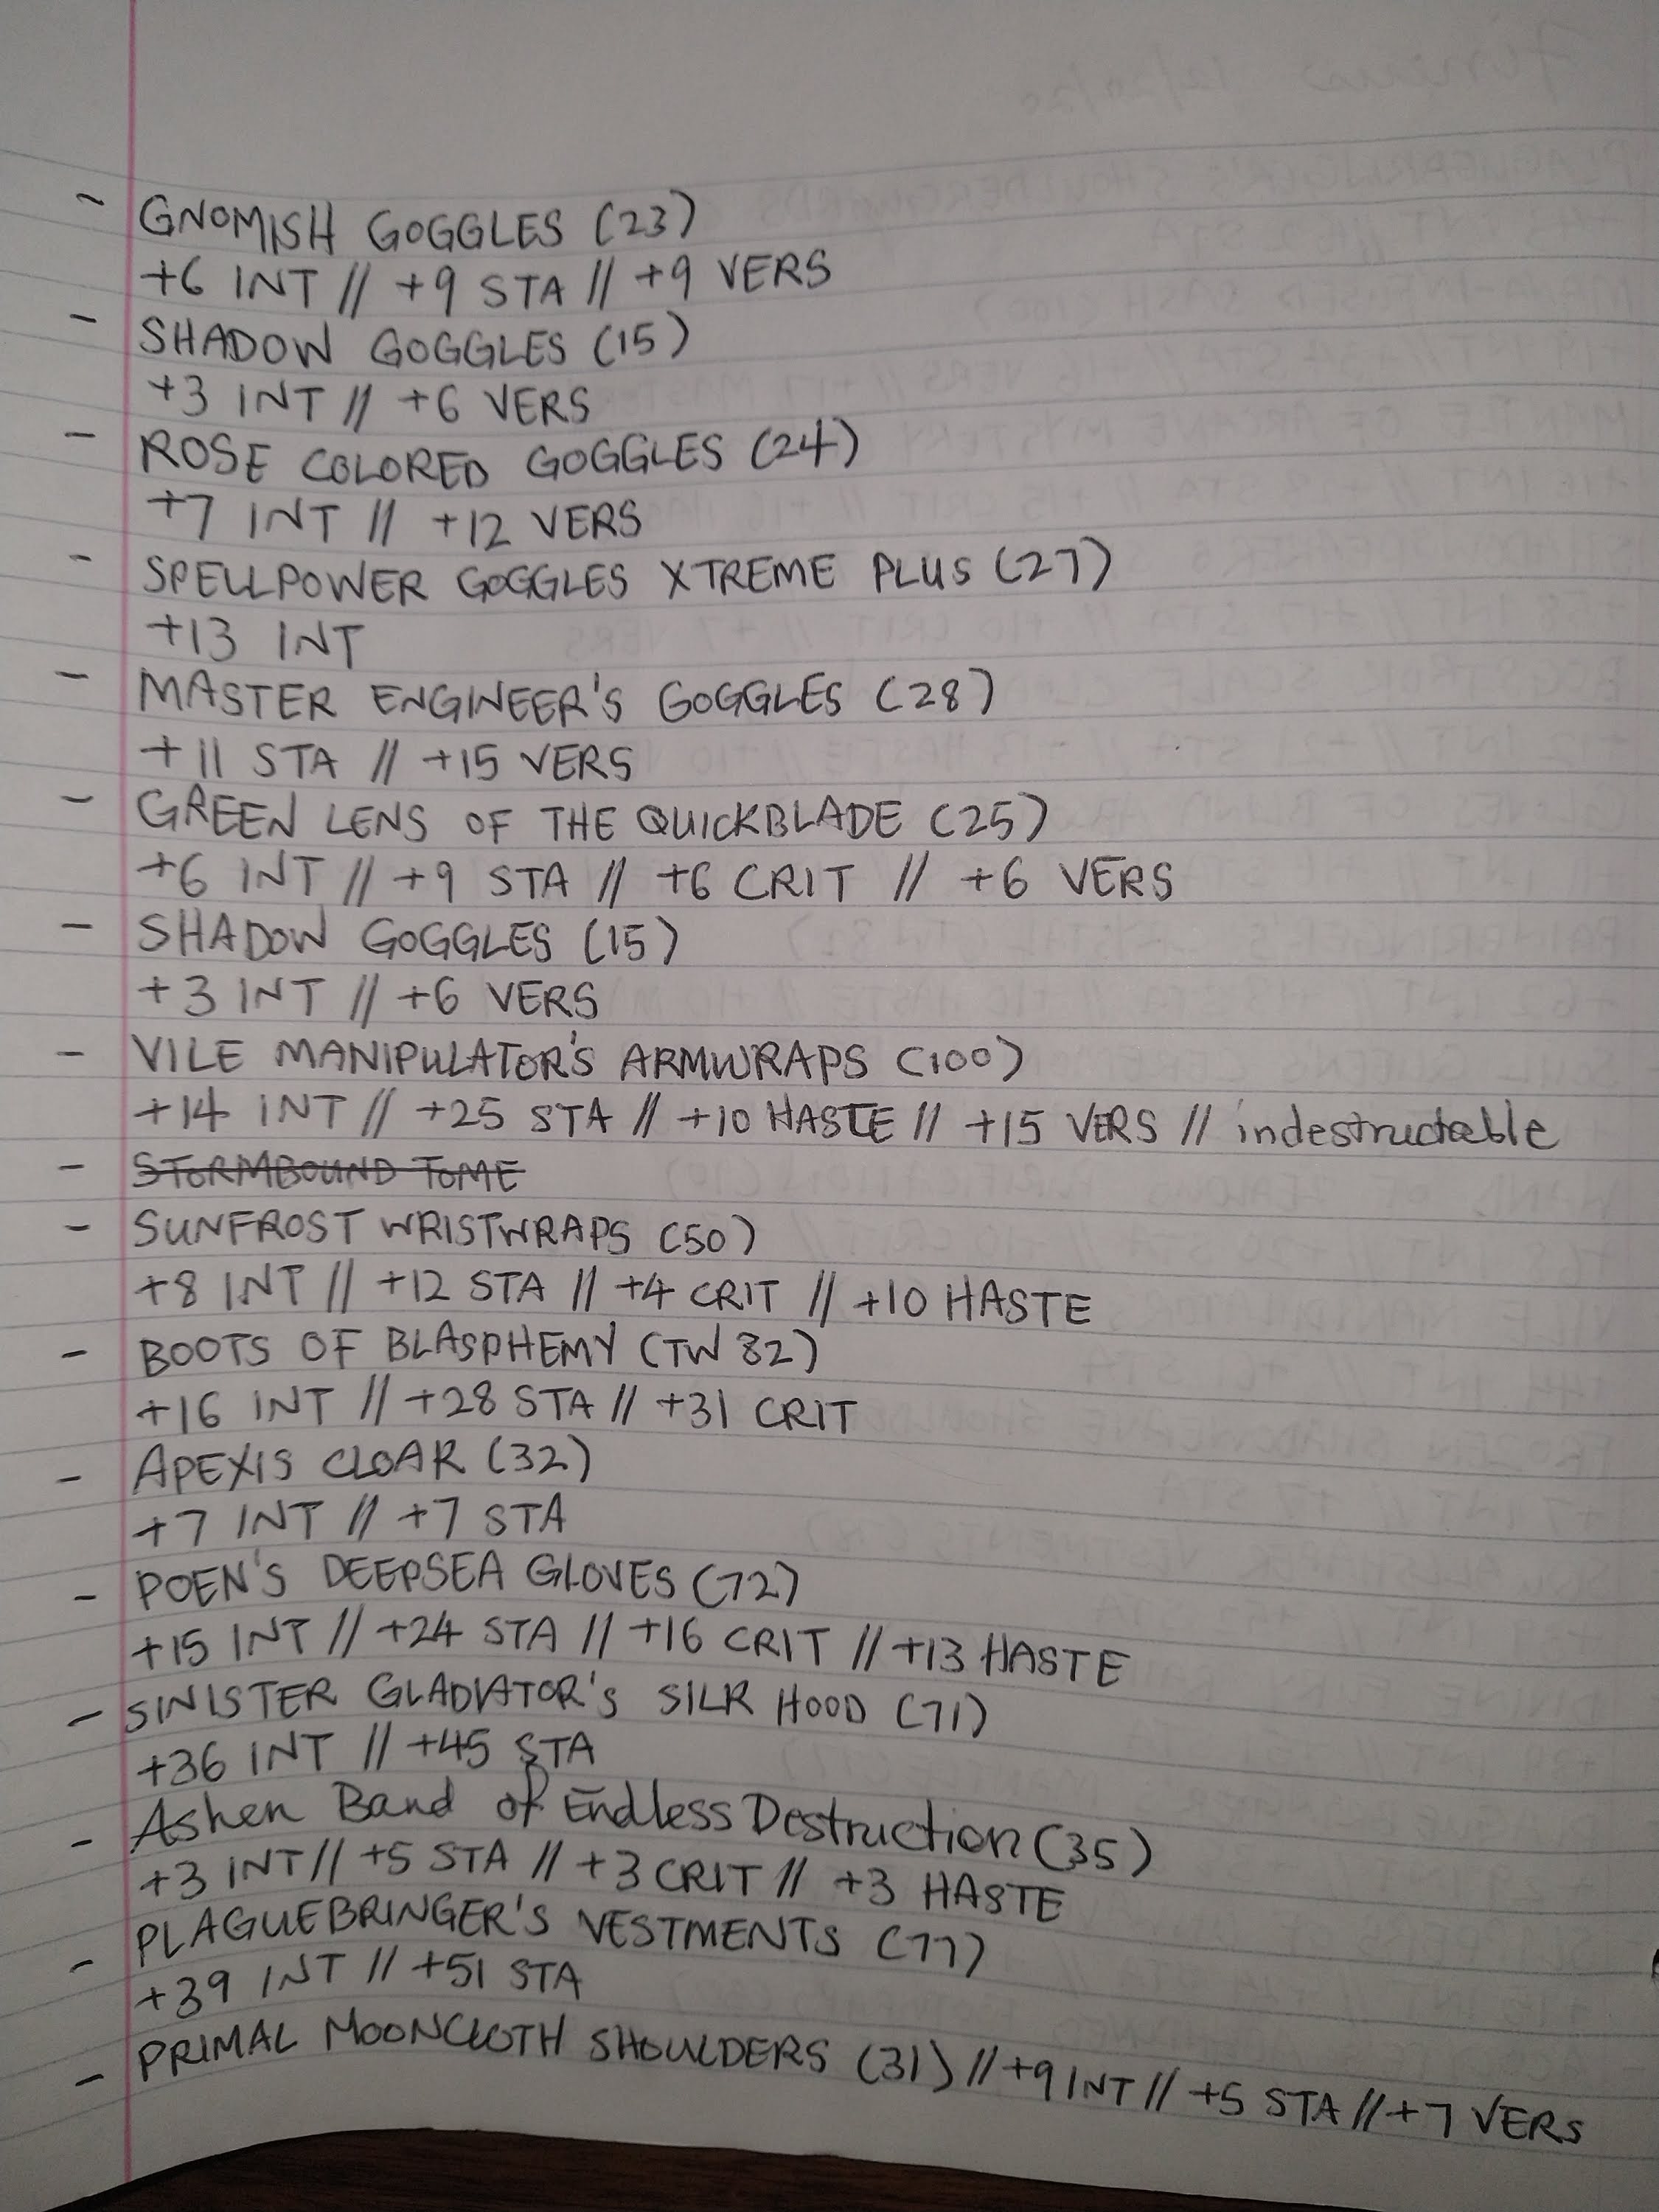 - GNOMISH GOGGLES (23)
+6 INT // +9 STA // +9 VERS
- SHADOW GOGGLES (15)
+3 INT // +6 VERS
- ROSE COLORED GOGGLES (24)
+7 INT // +12 VERS
- SPELLPOWER GOGGLES XTREME PLUS (27)
+13 INT
- MASTER ENGINEER'S GOGGLES (28)
+11 STA // +15 VERS
- GREEN LENS OF THE QUICKBLADE (25)
+6 INT // +9 STA // +6 CRIT // +6 VERS
- SHADOW GOGGLES (15)
+3 INT // +6 VERS
- VILE MANIPULATOR'S ARMWRAPS (100)
+14 INT // +25 STA // +10 HASTE // +15 VERS // indestructable
- STORMBOUND TOME
- SUNFROST WRISTWRAPS (50)
+8 INT // +12 STA // +4 CRIT // +10 HASTE
- BOOTS OF BLASPHEMY (TW 82)
+16 INT // +28 STA // +31 CRIT
- APEXIS CLOAK (32)
+7 INT // +7 STA
- POEN'S DEEPSEA GLOVES (72)
+15 INT // +24 STA // +16 CRIT // +13 HASTE
- SINISTER GLADIATOR'S SILK HOOD (71)
+36 INT // +45 STA
- Ashen Band of Endless Destruction (35)
+3 INT // +5 STA // +3 CRIT // +3 HASTE
- PLAGUEBRINGER'S VESTMENTS (77)
+39 INT // +51 STA
- PRIMAL MOONCLOTH SHOULDERS (31) // +9 INT // +5 STA // +7 VERS